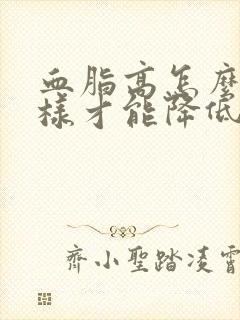 血脂高怎麼
樣才能降低
齊小聖踏凌霄